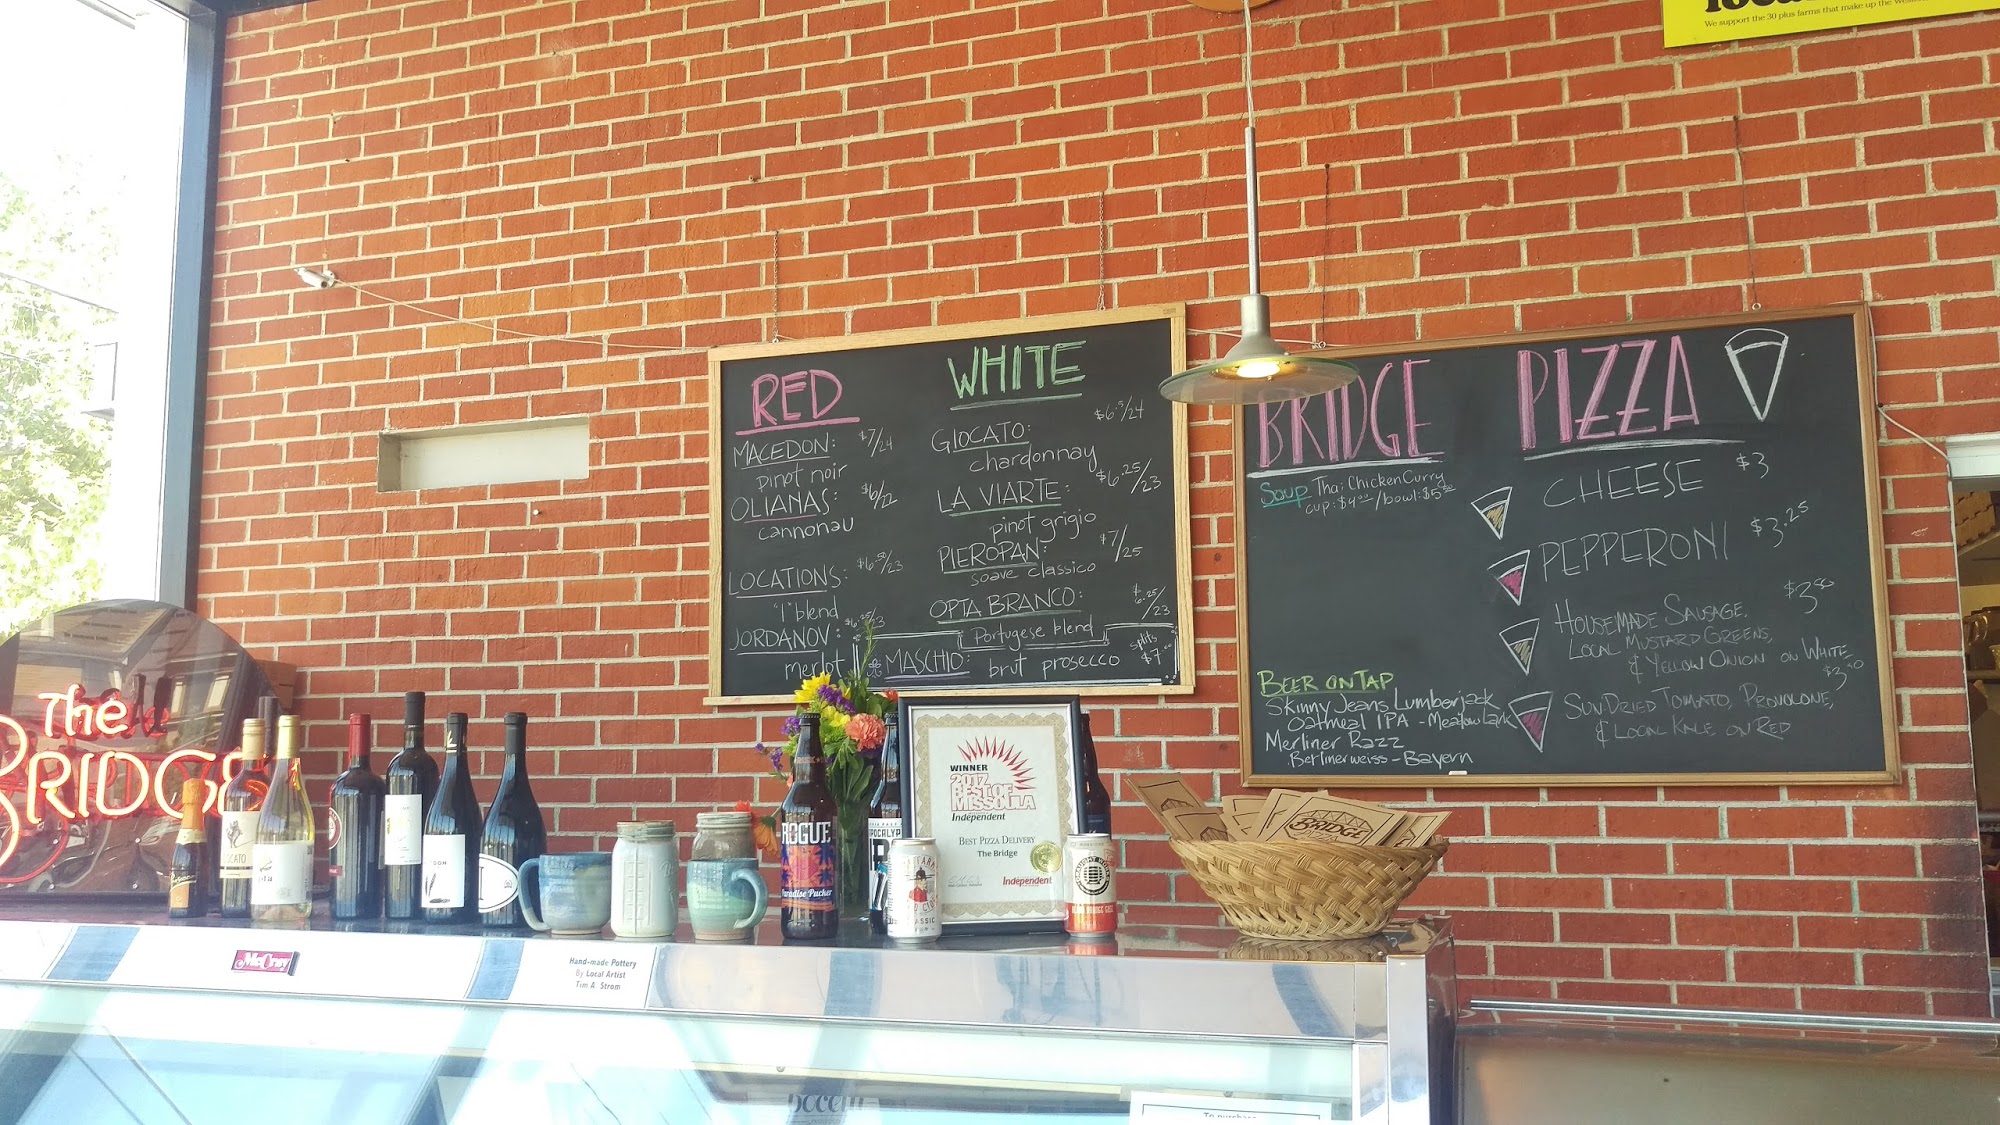 We support the 30 plus farms that make up the
RED
MACEDON: $7/24
pinot noir
OLIANAS: $6/22
cannonau
LOCATIONS: $6.50/23
"I" blend
JORDANOV: $6.25/23
merlot
WHITE
GIOCATO: $6.5/24
chardonnay
LA VIARTE: $6.25/23
pinot grigio
PIEROPAN: $7/25
soave classico
OPTA BRANCO: $6.25/23
Portugese blend
MASCHIO: brut prosecco splits $7.00
BRIDGE PIZZA
Soup Thai Chicken Curry
cup: $4.00/bowl: $5.50
CHEESE $3
PEPPERONI $3.25
HOUSEMADE SAUSAGE, $3.50
LOCAL MUSTARD GREENS,
& YELLOW ONION ON WHITE
$3.50
SUNDRIED TOMATO, PROVOLONE,
& LOCAL KALE ON RED
BEER ON TAP
Skinny Jeans Lumberjack
Oatmeal IPA - Meadowlark
Merliner Razz
Berlinerweiss - Bayern
The
BRIDGE
ROGUE
Paradise Pucker
WINNER
2017
BEST OF
MISSOULA
Independent
BEST PIZZA DELIVERY
The Bridge
Independent
CLASSIC
BRIDGE
McCray
Hand-made Pottery
By Local Artist
Tim A Strom
To purchase